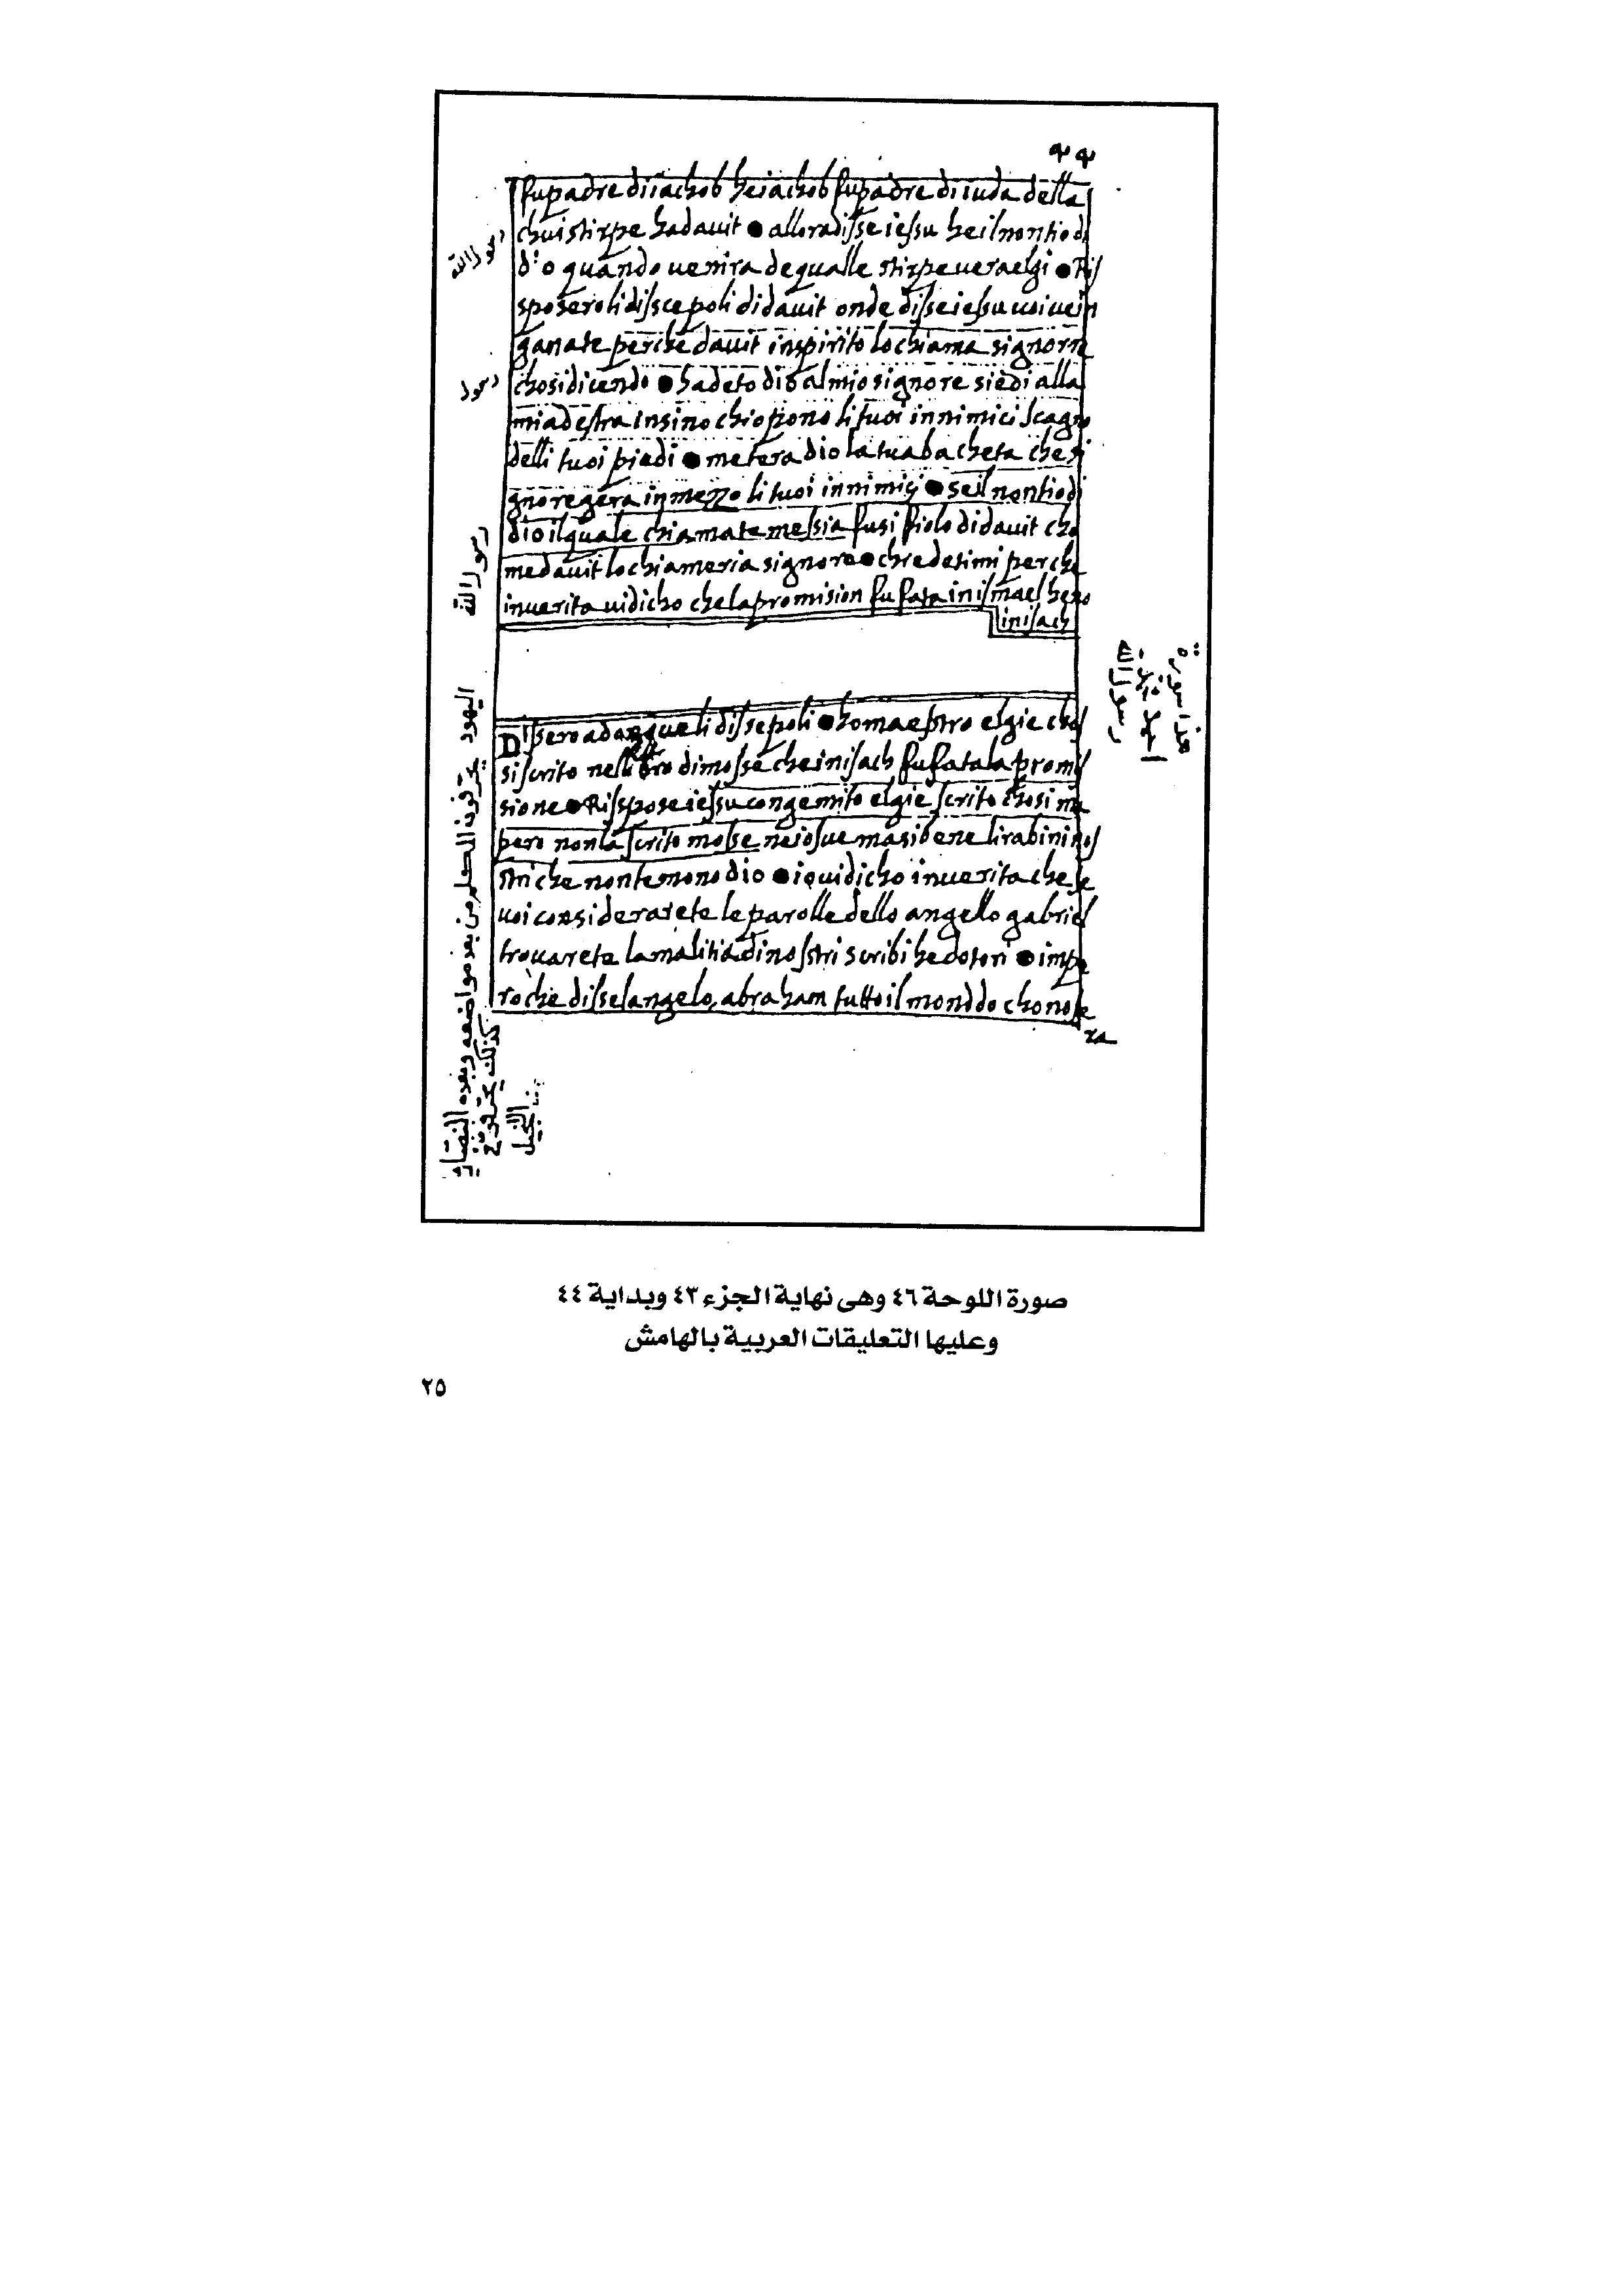 ٤٤
fu padre di iachob he iachob fu padre di iuda della
chui stirpe he davit ● allora disse iessu he il nontio di
dio quando uenira de qualle stirpe uera elgi ● Ris
sposero li disscepoli di dauit onde disse iessu uoi ue in
ganate perche dauit in spirito lo chiama signorre
chosi dicendo ● ha deto dio al mio signore siedi alla
mia destra insino chio pono li tuoi innimici scagno
delli tuoi piedi ● metera dio la tua bacheta che si
gnoregera in mezzo li tuoi innimici ● se il nontio di
dio il quale chiamate messia fusi fiolo di dauit cho
me dauit lo chiameria signore ● chredetimi perche
in uerita ui dicho che la promision fu fata in ismael he no
in isach
Dissero adonque li dissepoli ● ho maestro elgie cho
si scrito nel libro di mosse che in isach fu fata la promis
sione ● Risspose iessu con gemito elgie scrito chosi ma
pero non la scrito mosse ne iosue ma si bene li rabini nos
stri che non temono dio ● io ui dicho in uerita che se
uoi considerarete le parolle dello angello gabriel
trouarete la malitia di nosstri scribi he dotori ● impe
ro che disse langelo, abraham tutto il monddo chonose
ra
رسول الله
رسول
رسول الله
اليهود يحرفون الكلم من بعد مواضعه وبعده النصارى
كذلك يحرفون
الانجيل
هذا سورة
احمد محمد
رسول الله
صورة اللوحة ٤٦ وهى نهاية الجزء ٤٣ وبداية ٤٤
وعليها التعليقات العربية بالهامش
٢٥